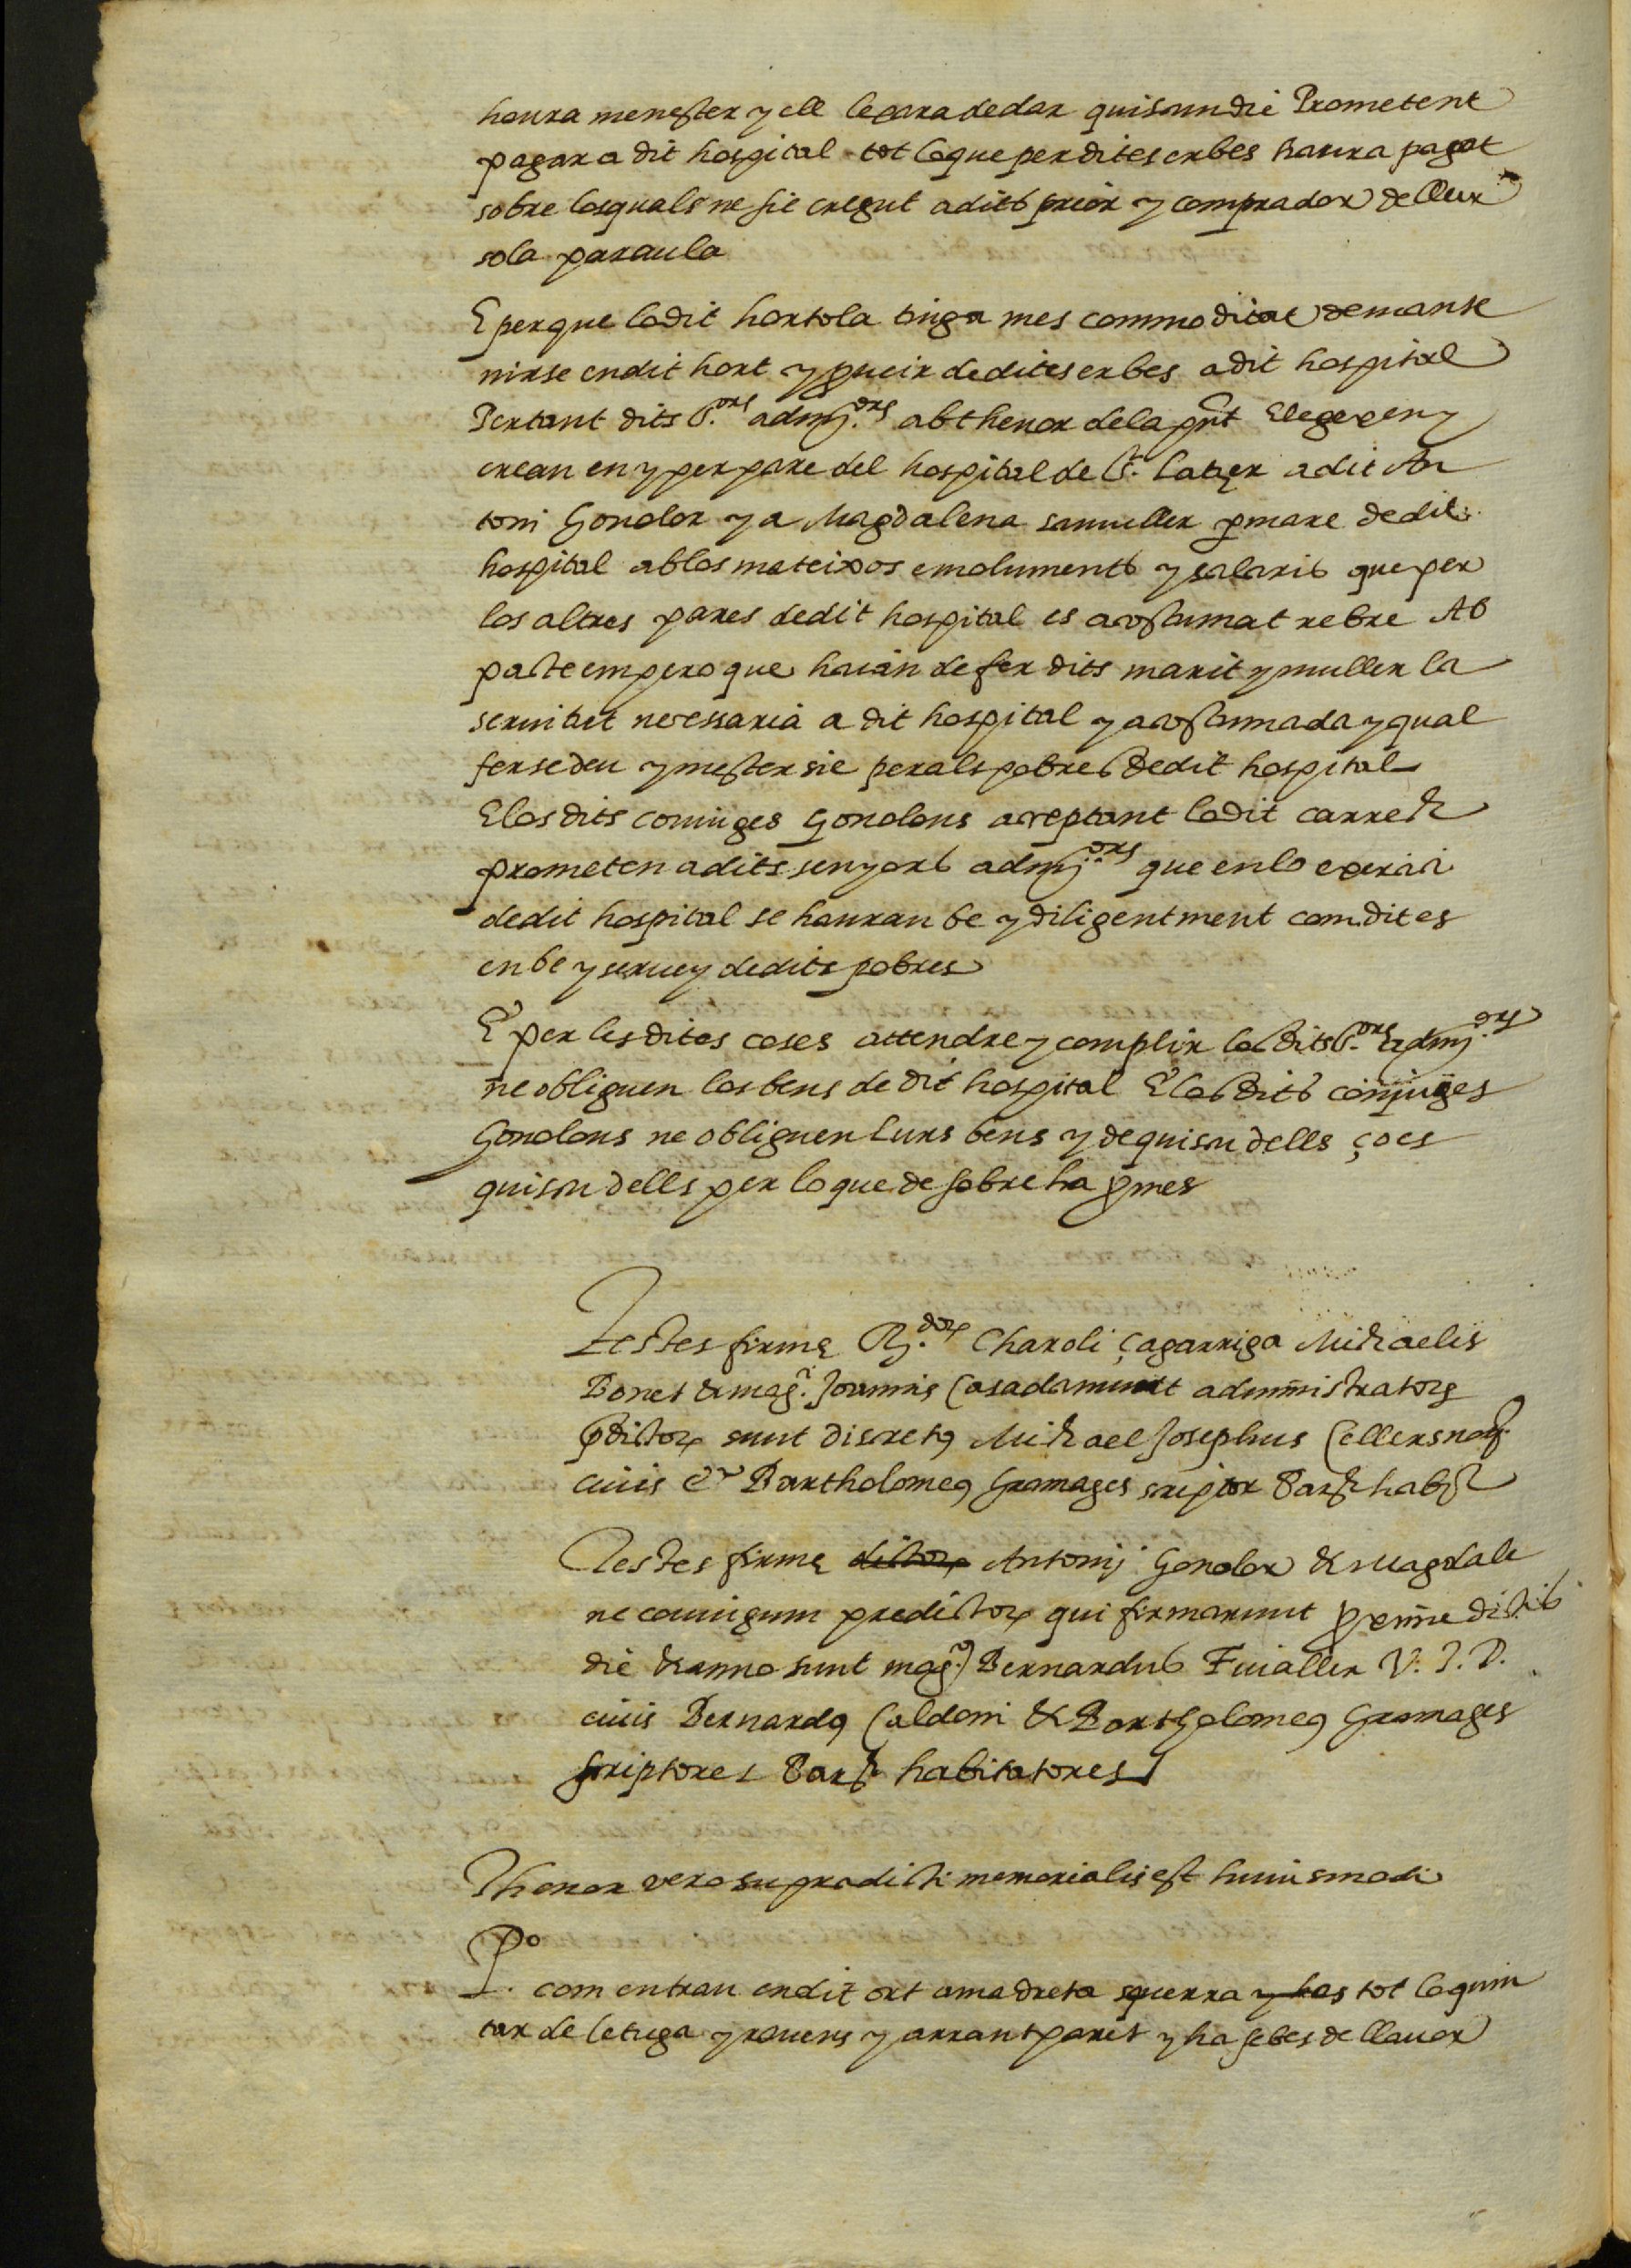 haura menester y ell leora de dar quiscun die Prometent
pagar a dit hospital tot lo que per dites erbes haura pagat
sobre los quals ne sie cregut a dits prior y comprador de llur
sola paraula
E perque lo dit hortola tinga mes commoditat de mante
nirse en dit hort y proueir de dites erbes a dit hospital
Pertant dits S.ors admj.ors ab thenor de la pnt Elegexen y
crean en y per pare del hospital de St. Latzer a dit An
toni Gondor y a Magdalena sa muller p mare de dit
hospital ab los mateixos emoluments y salaris que per
los altres pares de dit hospital es acostumat rebre Ab
pacte empero que haian de fer dits marit y muller la
seruitut necessaria a dit hospital y acostumada y qual
fer se deu y mester sie per als pobres de dit hospital
E los dits coniuges Gondons acceptant lo dit carrech
prometen a dits senyors admj.ors que en lo exercici
de dit hospital se hauran be y diligentment com dit es
en be y seruey de dits pobres
E per les dites coses attendre y complir los dits S.ors admj.ors
ne obliguen los bens de dit hospital E los dits conjuges
Gondons ne obliguen lurs bens y de quiscu dells ço es
quiscu dells per lo que de sobre ha pmes
Testes firme Rj.dor Charoli çagarriga Michaelis
Bonet & mag.ci Joannis Casadamunt administrator
pdictor sunt discretus Michael Josephus Cellers not.
ciuis et Bartholomeus Gramages scriptor Barch habit
Testes firme dictor Antonij Gondor & Magdale
ne coniugum predictor qui firmarunt proxime dictis
die & anno sunt mag.cus Bernardus Fiualler V. J. D.
ciuis Bernardus Caldoni & Bartholomeus Gramages
scriptores Barch habitatores
Thenor vero supradicti memorialis est huiusmodi
Po
com entrau en dit ort a ma dreta squerra y has tot lo quin
tar de letuga y rauens y arrant paret y ha sebes de llauor